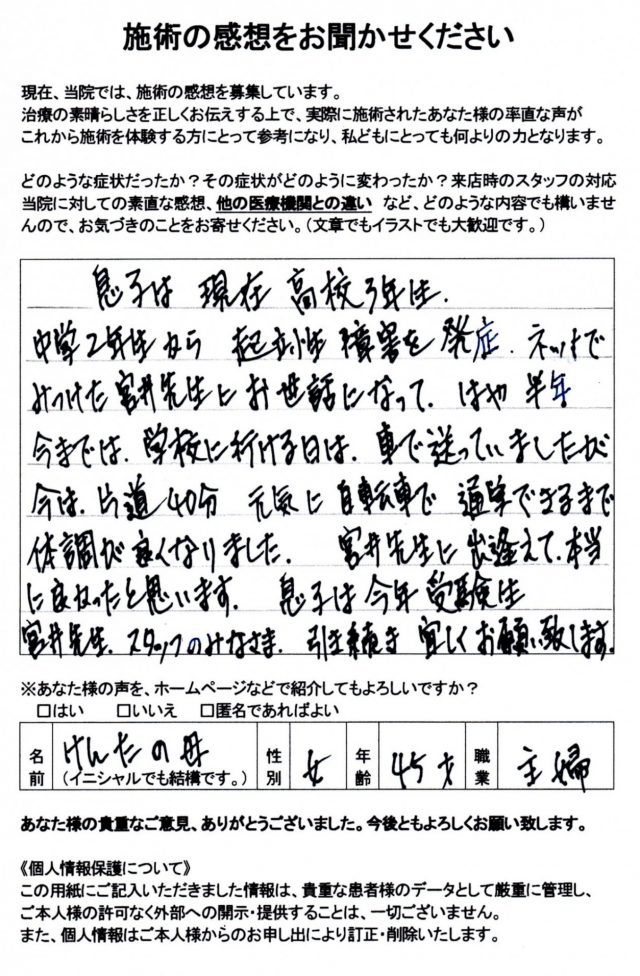 施術の感想をお聞かせください
現在、当院では、施術の感想を募集しています。
治療の素晴らしさを正しくお伝えする上で、実際に施術されたあなた様の率直な声が
これから施術を体験する方にとって参考になり、私どもにとっても何よりの力となります。
どのような症状だったか？その症状がどのように変わったか？来店時のスタッフの対応
当院に対しての素直な感想、他の医療機関との違い など、どのような内容でも構いませ
んので、お気づきのことをお寄せください。（文章でもイラストでも大歓迎です。）
息子は 現在 高校3年生.
中学2年生から 起立性障害を発症. ネットで
みつけた宮井先生にお世話になって. はや半年
今までは. 学校に行ける日は. 車で送っていましたが
今は. 片道40分 元気に自転車で 通学できるまで
体調が良くなりました. 宮井先生に出逢えて.本当
に良かったと思います. 息子は今年受験生
宮井先生. スタッフのみなさま. 引き続き 宜しくお願い致します.
※あなた様の声を、ホームページなどで紹介してもよろしいですか？
□はい □いいえ □匿名であればよい
名前 けんたの母 （イニシャルでも結構です。） 性別 女 年齢 45才 職業 主婦
あなた様の貴重なご意見、ありがとうございました。今後ともよろしくお願い致します。
《個人情報保護について》
この用紙にご記入いただきました情報は、貴重な患者様のデータとして厳重に管理し、
ご本人様の許可なく外部への開示・提供することは、一切ございません。
また、個人情報はご本人様からのお申し出により訂正・削除いたします。